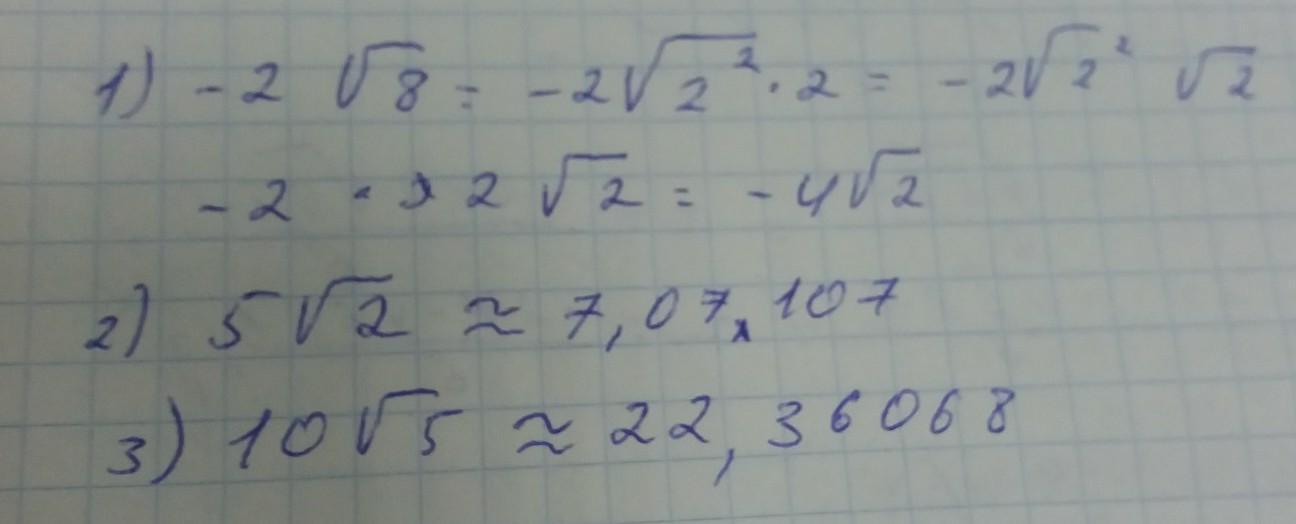 1) -2 √8 = -2√2² · 2 = -2√2² √2
-2 · 2 √2 = -4√2
2) 5√2 ≈ 7,07107
3) 10√5 ≈ 22,36068